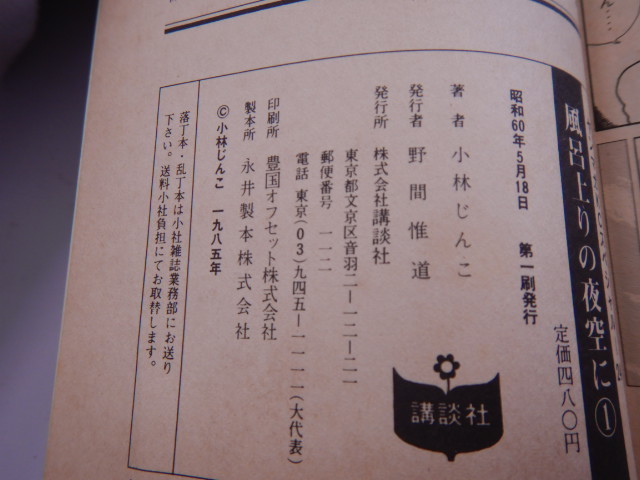 風呂上りの夜空に①
定価四八〇円
昭和60年5月18日 第一刷発行
著者 小林じんこ
発行者 野間惟道
発行所 株式会社講談社
東京都文京区音羽二ー一二ー二一
郵便番号 一一二
電話 東京(03)九四五ー一一一一(大代表)
印刷所 豊国オフセット株式会社
製本所 永井製本株式会社
©小林じんこ 一九八五年
落丁本・乱丁本は小社雑誌業務部にお送り
下さい。送料小社負担にてお取替します。
講談社